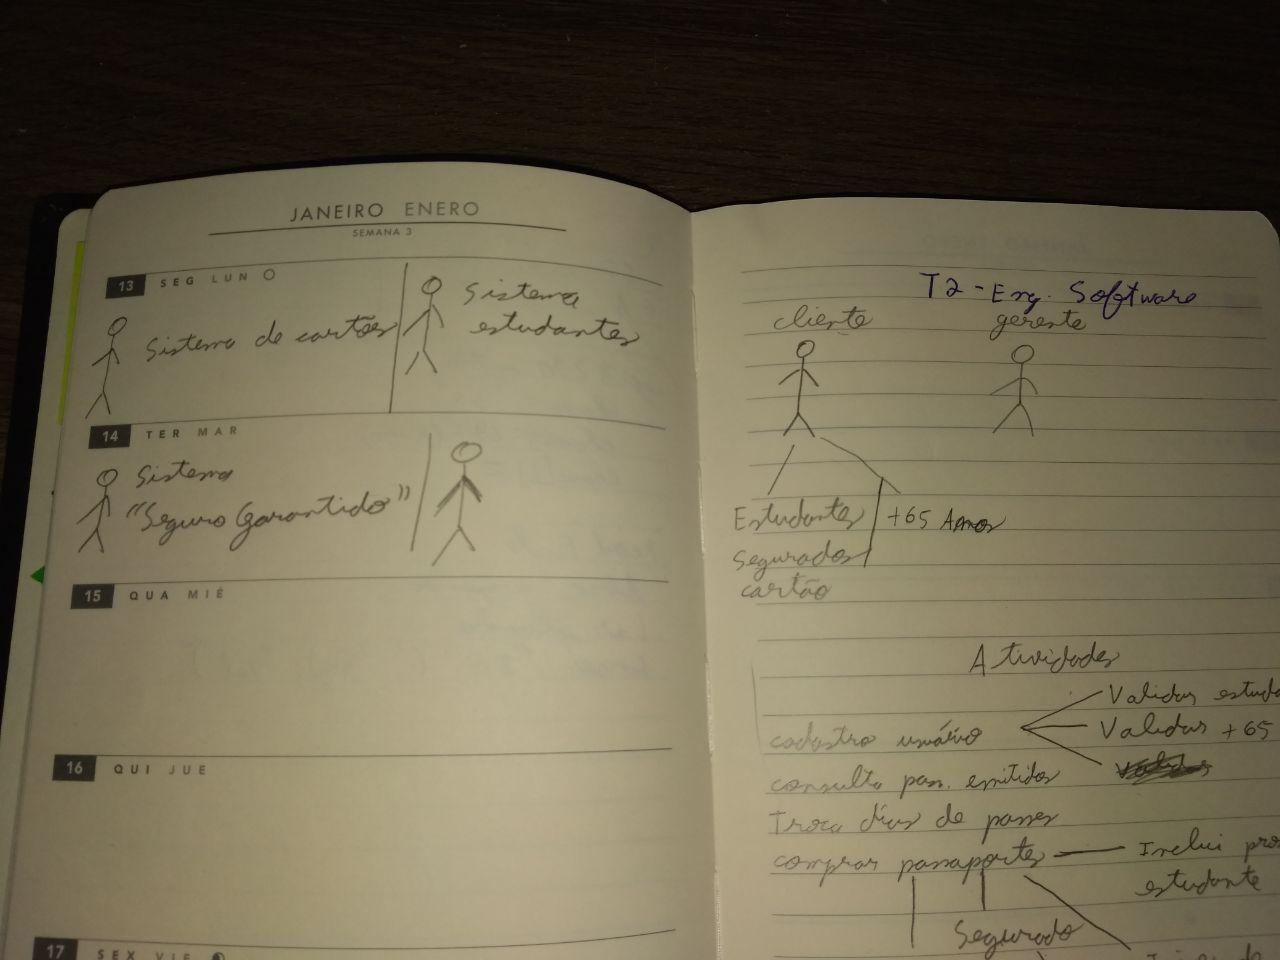 JANEIRO ENERO
SEMANA 3
13 SEG LUN
Sistema de cartões
Sistema
estudantes
14 TER MAR
Sistema
"Seguro Garantido"
15 QUA MIÉ
16 QUI JUE
17 SEX VIE
T2 - Eng. Software
cliente gerente
Estudantes +65 Anos
Segurados
cartão
Atividades
Validar
cadastro usuário Validar +65
consulta pas. emitidos
Troca dias de passes
comprar passaportes Inclui
estudante
Segurado